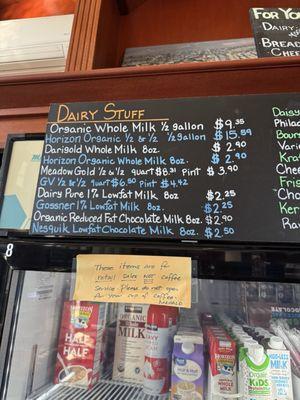 FOR YOU
DAIRY
BREAD
CHEE
DAIRY STUFF
Organic Whole Milk ½ gallon $9.35
Horizon Organic ½ & ½ ½ gallon $15.59
Darigold Whole Milk 8oz. $2.90
Horizon Organic Whole Milk 8oz. $2.90
Meadow Gold ½ & ½ quart $8.31 Pint $3.90
GV ½ & ½ quart $6.90 Pint $4.42
Dairy Pure 1% Lowfat Milk 8oz. $2.25
Gossner 1% Lowfat Milk 8oz. $2.25
Organic Reduced Fat Chocolate Milk 8oz. $2.90
Nesquik Lowfat Chocolate Milk 8oz. $2.50
8
These items are for
retail sales NOT coffee
service. Please do not open
for your cup of coffee.
MAHALO
HORIZON
ORGANIC
HALF
&
HALF
ORGANIC
WHOLE
MILK
half & half
HORIZON
WHOLE
Organic
KIDS